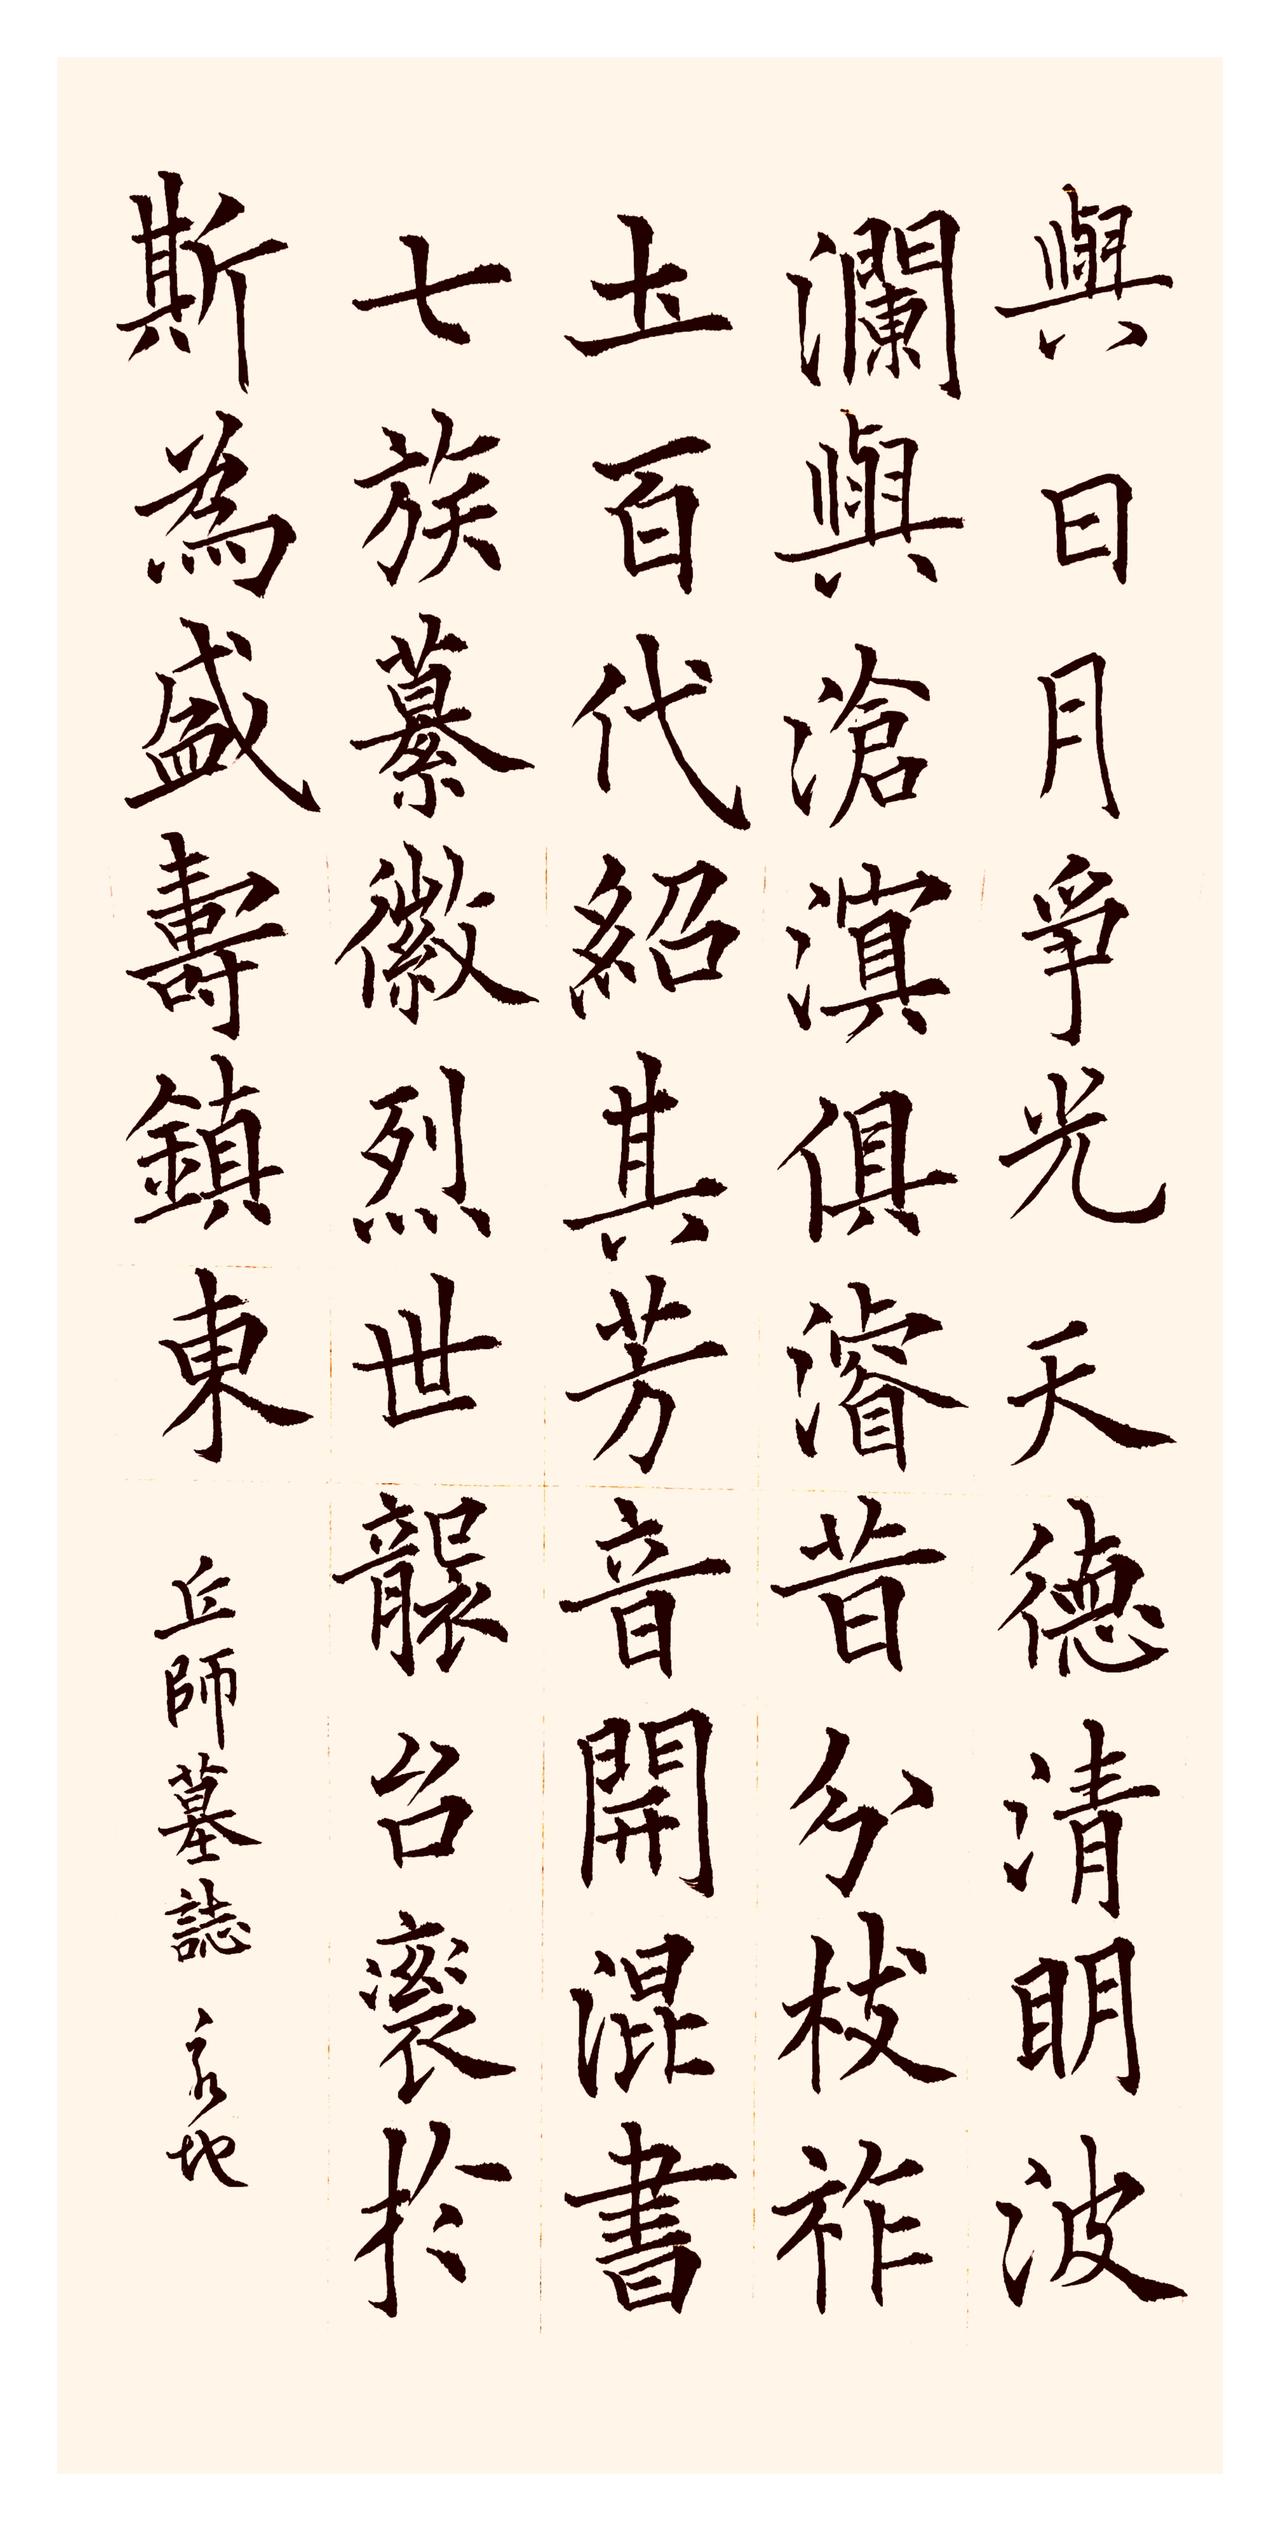 與日月爭光天德清明波
瀾與滄溟俱濬昔分枝祚
土百代紹其芳音開混書
七族纂徽烈世襲台衮於
斯為盛壽鎮東
丘師墓誌 地